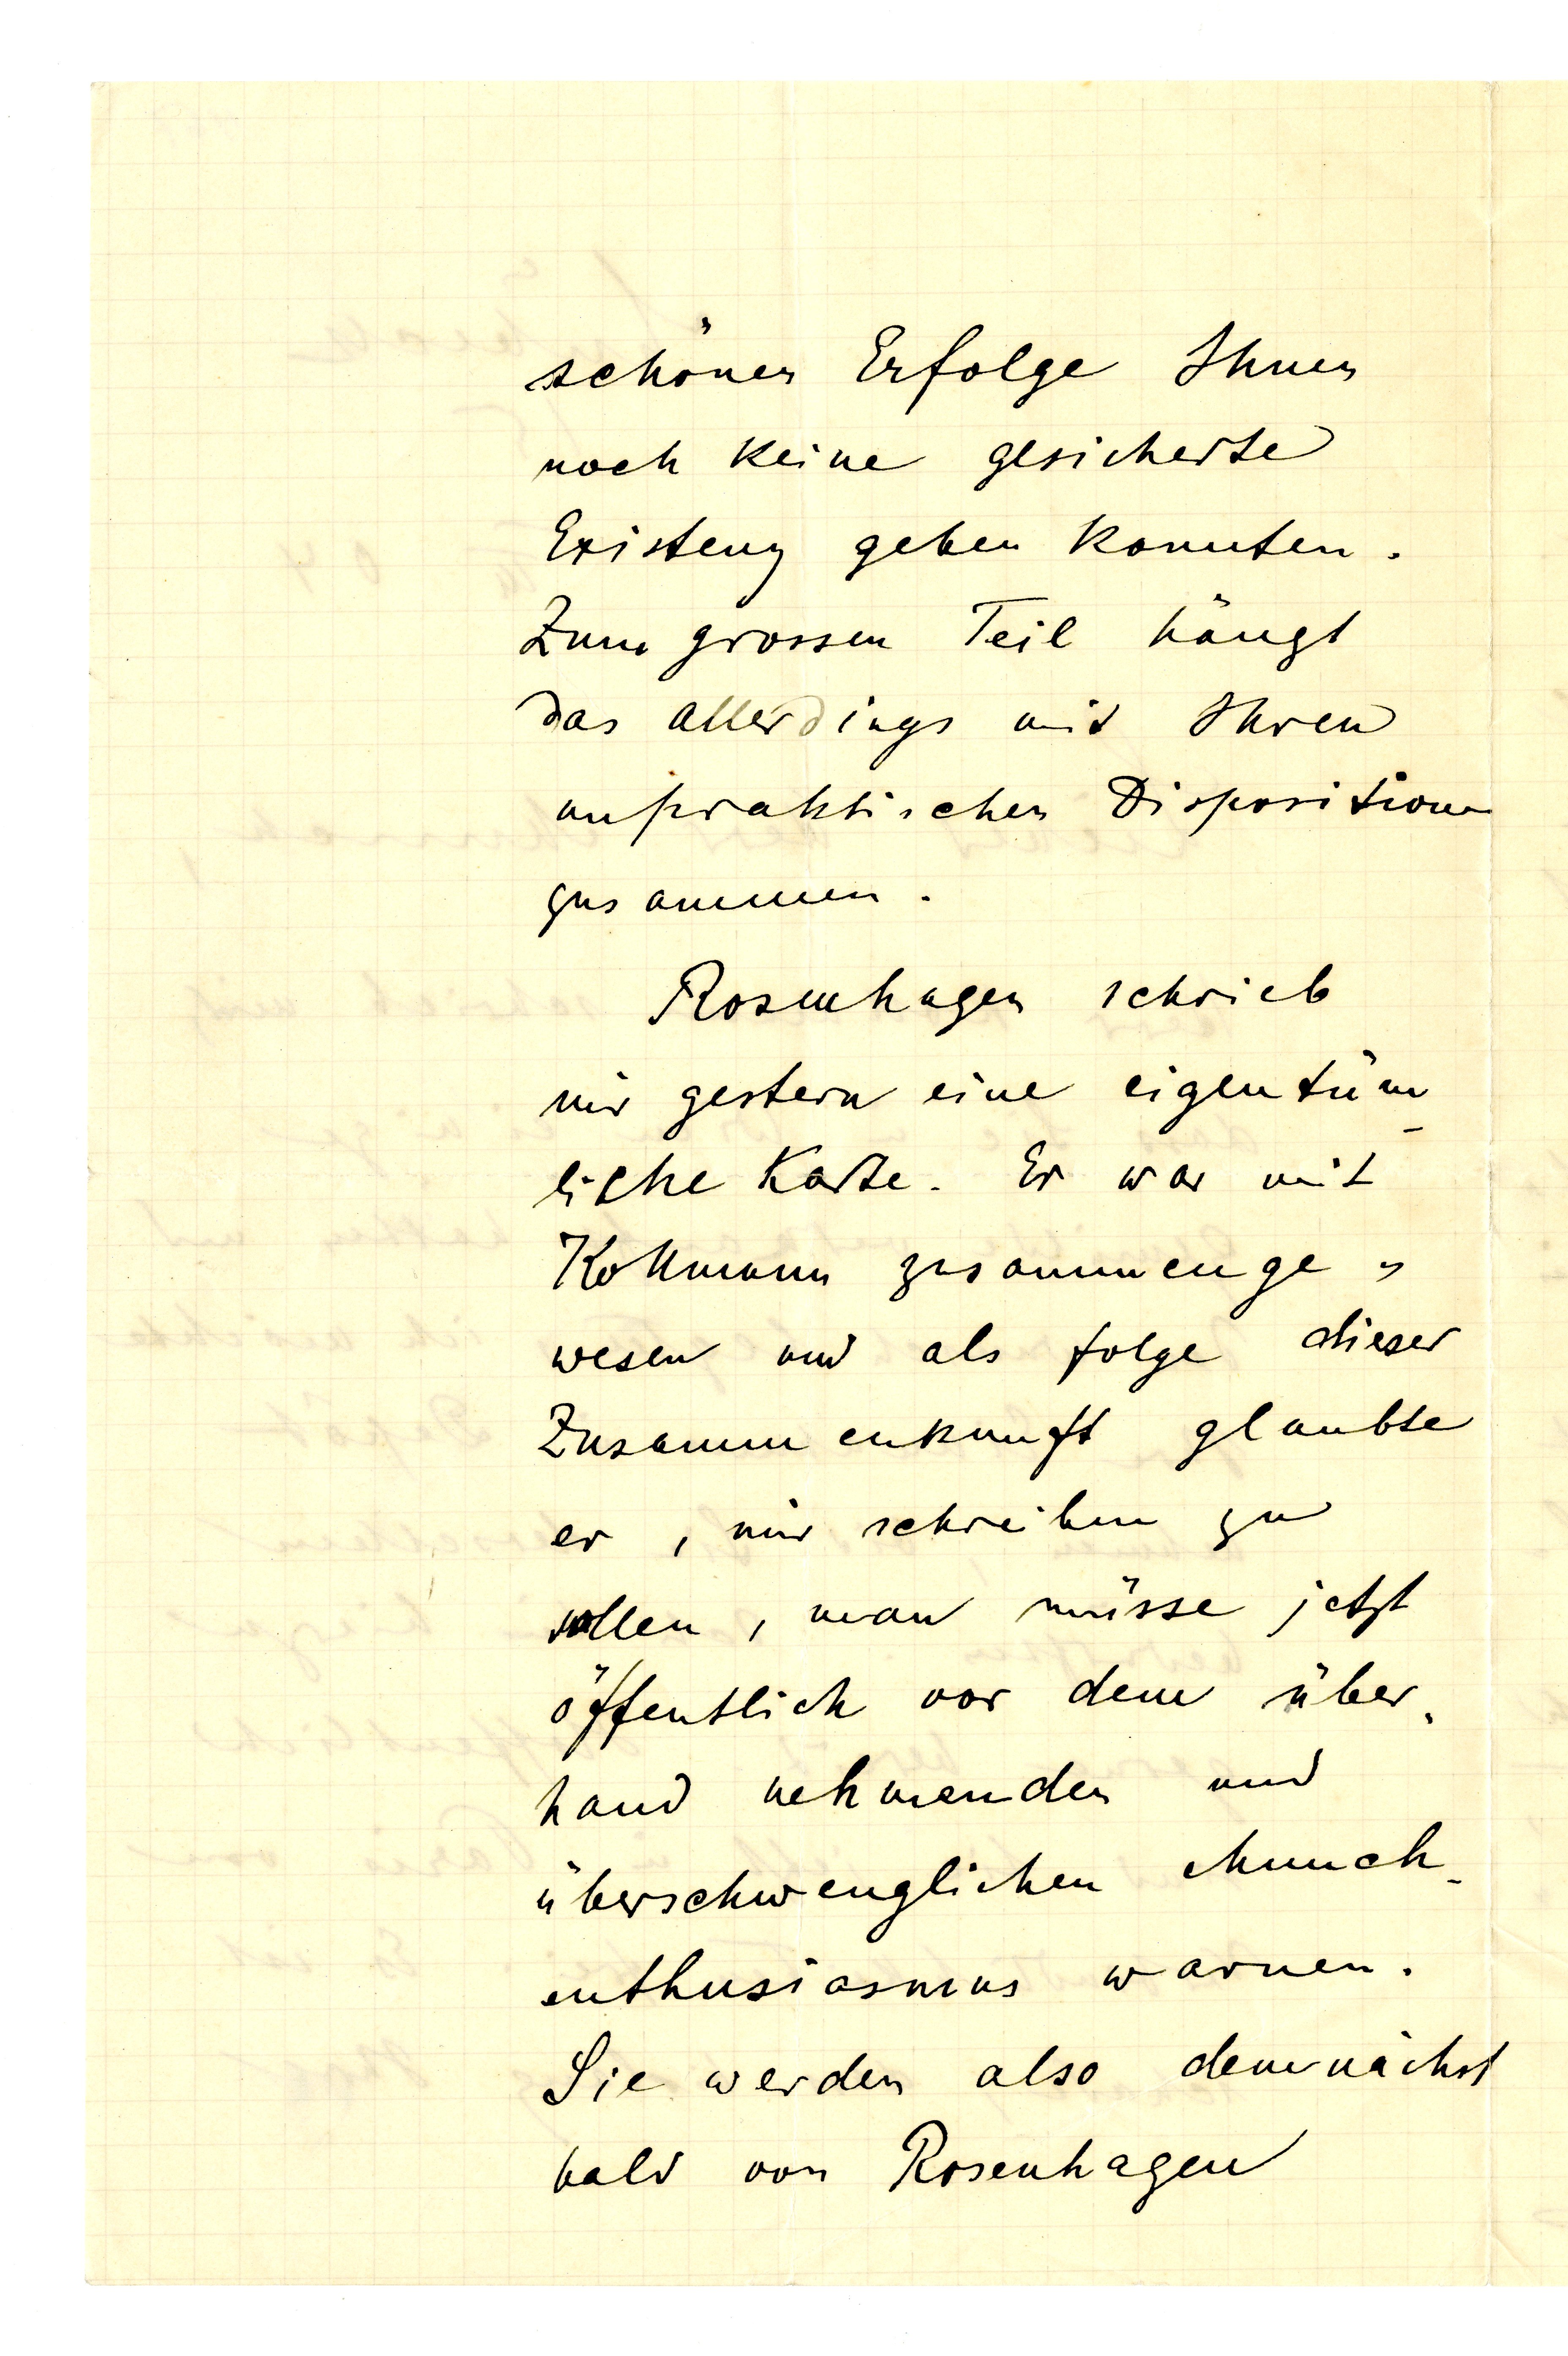 schönen Erfolge Ihnen
noch keine gesicherte
Existenz geben konnten.
Zum grossen Teil hängt
das allerdings mit Ihren
unpraktischen Disposition
zusammen.
Rosenhagen schrieb
mir gestern eine eigentüm-
liche Karte. Er war mit
Kollmann zusammenge-
wesen und als folge dieser
Zusammenkunft glaubte
er, mir schreiben zu
sollen, man müsse jetzt
öffentlich vor dem über-
hand nehmenden und
überschwenglichen Munch-
enthusiasmus warnen.
Sie werden also demnächst
bald von Rosenhagen